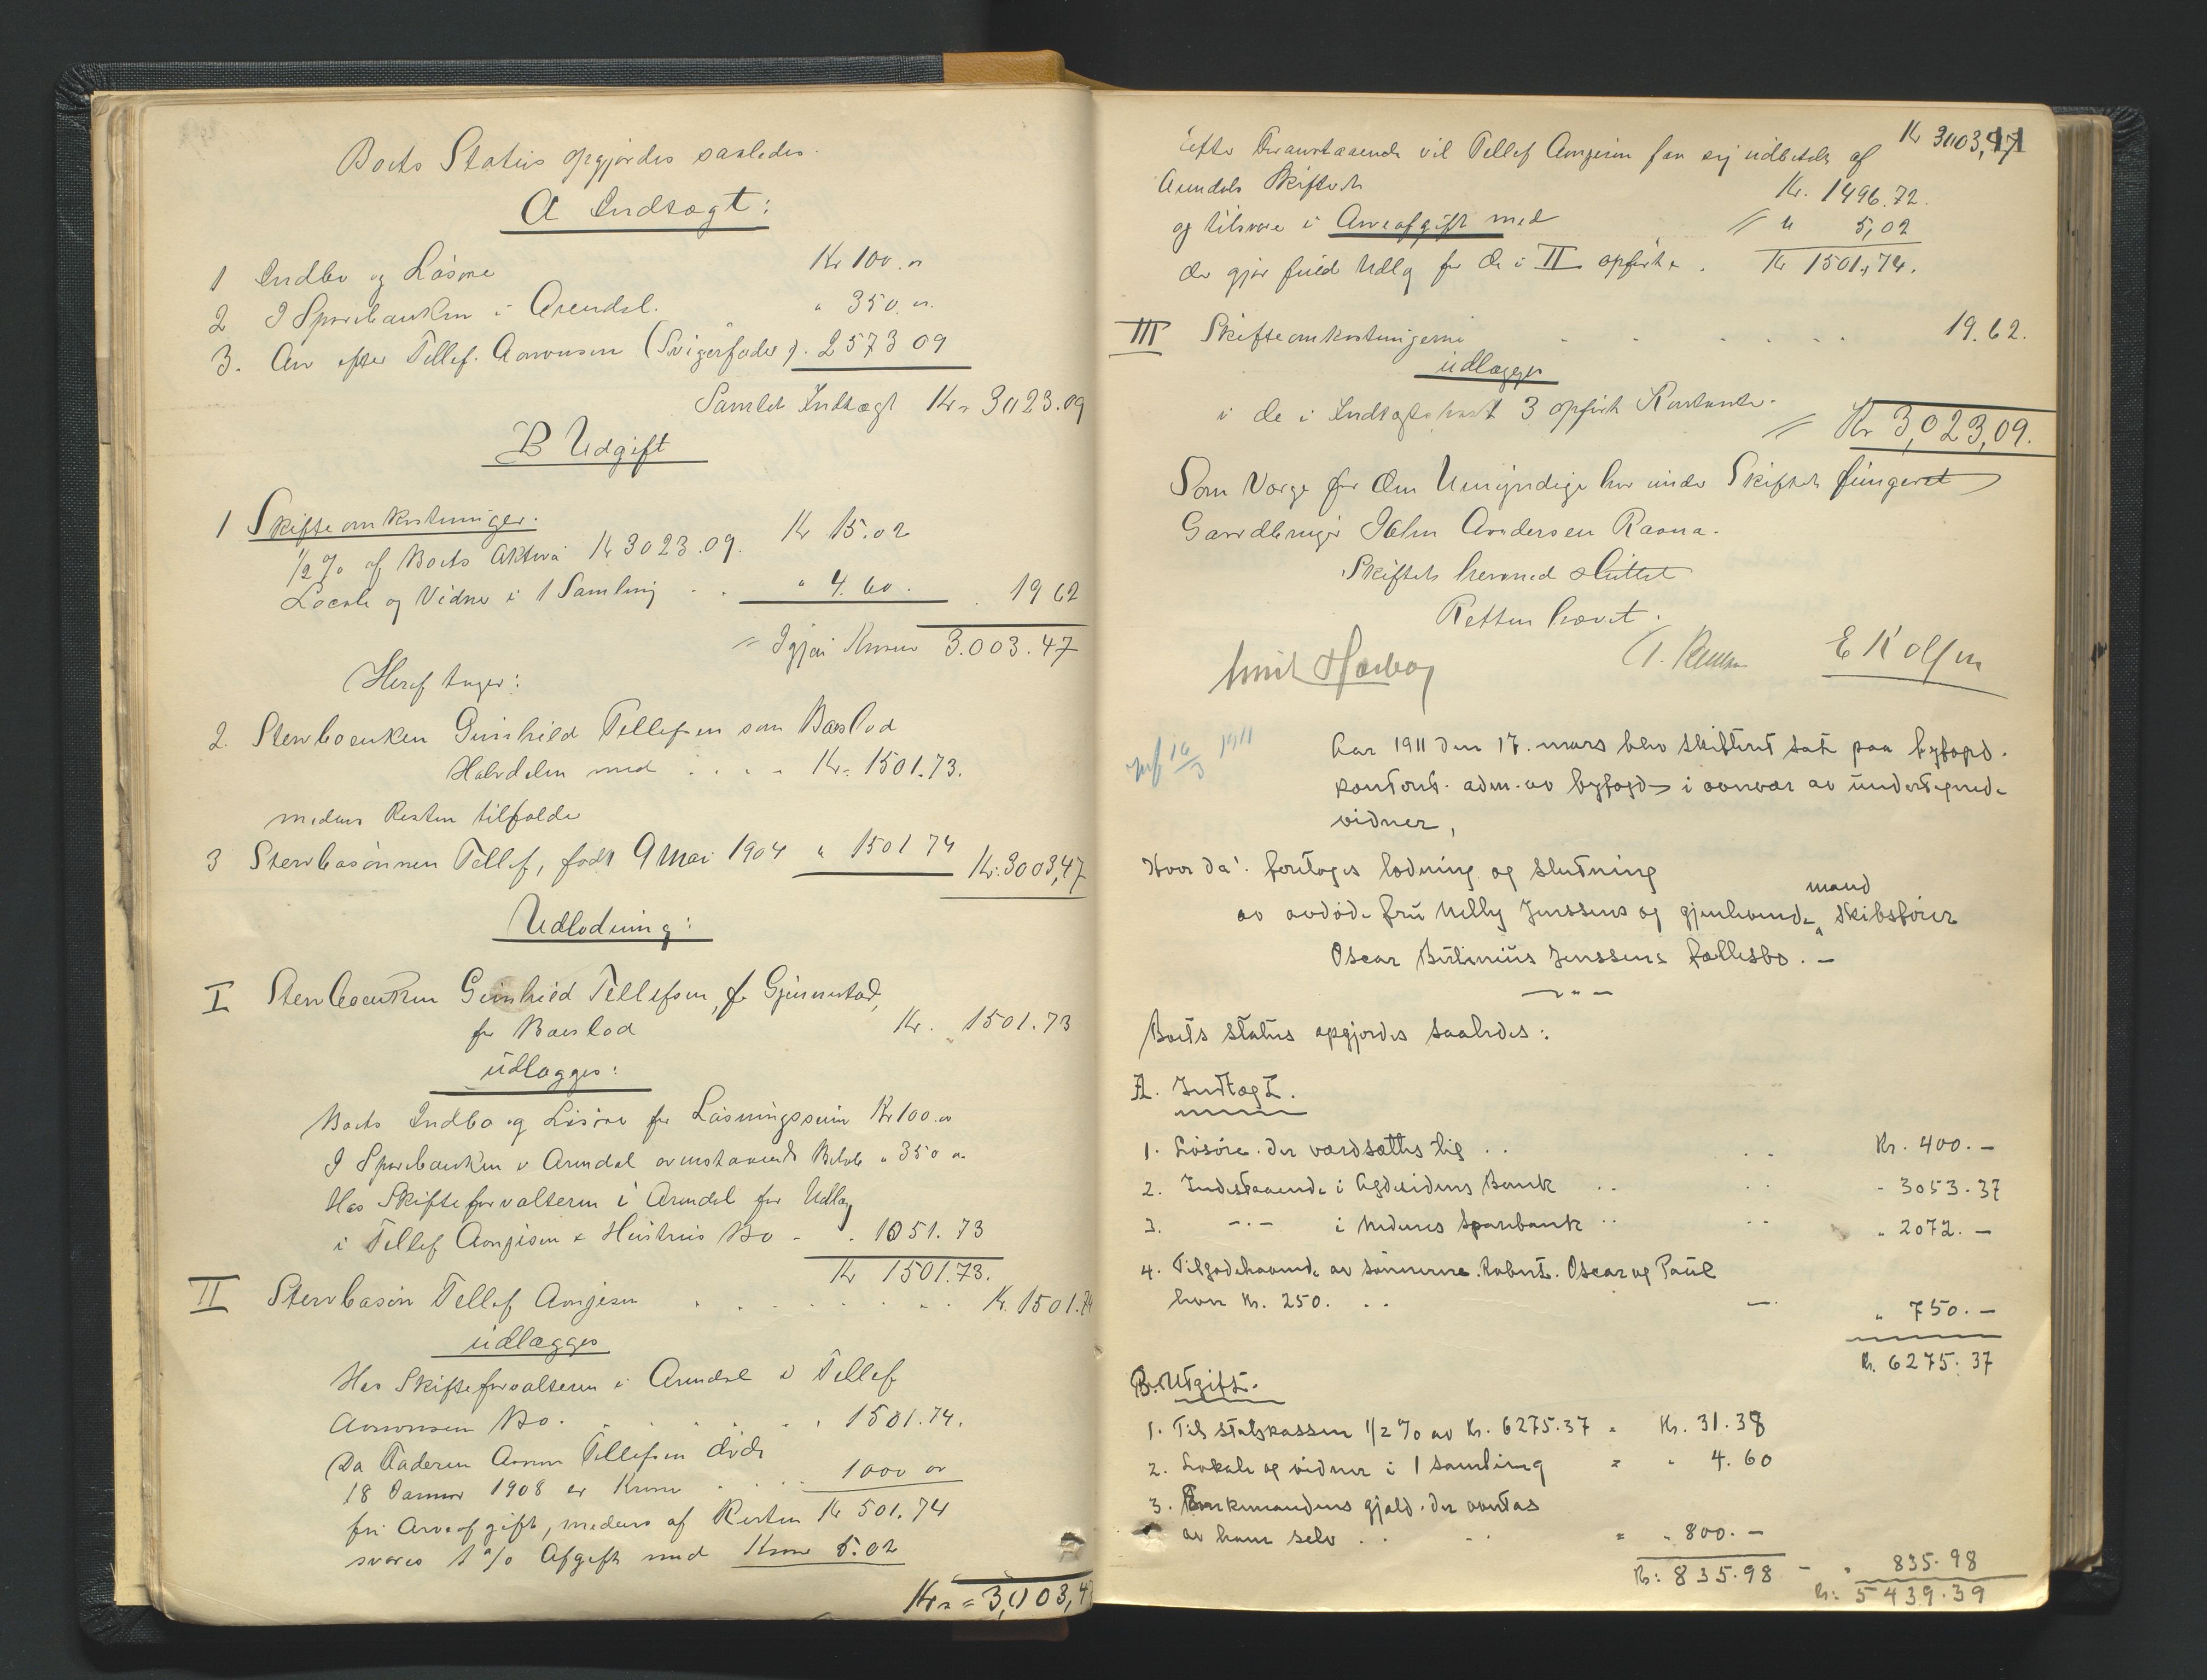 Boets Status opgjordes saaledes.
A Indtægt:
1 Indbo og Løsøre Kr 100. "
2 I Sparebanken i Arendal. " 350. "
3. Arv efter Tellef Aanonsen (Svigerfader). 2573 09
Samlet Indtægt Kr = 3023.09
B Udgift
1 Skifteomkostninger.
1/2 % af Boets Aktiva Kr 3023.09. Kr 15.02
Locale og Vidner i 1 Samling . . " 4.60. 19 62
= Igjen Kroner 3.003.47
Heraf tager:
2. Stervboenken Gunhild Tellefsen som Boeslod
Halvdelen med . . . . Kr. 1501.73.
medens Resten tilfalder
3 Stervbosønnen Tellef, født 9 Mai 1904 " 1501 74 Kr. 3003,47
Udlodning:
I Stervboenken Gunhild Tellefsen, f. Gjennestad,
for Boeslod Kr. 1501.73
udlægges:
Boets Indbo og Løsøre for Løsningssum Kr 100. "
I Sparebanken i Arendal ovenstaaende Beløb " 350 "
Hos Skifteforvalteren i Arendal for Udlæg
i Tellef Aongisen & Hustrus Bo - . 1051.73
Kr 1501.73.
II Stervbosøn Tellef Aongisen . . . . . . . Kr. 1501.74
udlægges
Hos Skifteforvalteren i Arendal i Tellef
Aanonsens Bo. . . . . . . 1501.74.
Da Faderen Aanon Tellefsen døde
18 Januar 1908 er Kroner . . . 1000 "
fri Arveafgift, medens af Resten Kr 501.74
svares 1 % Afgift med Kroner 5.02
Kr = 3,003,47
Kr 3003,47
Efter Foranstaaende vil Tellef Aongisen faa sig udbetalt af
Arendals Skifteret Kr. 1496.72.
og tilsvare i Arveafgift med = " 5,02
der gjør fuld Udlæg for de i II opførte . Kr 1501,74.
III Skifteomkostningerne . . . . . . 19.62.
udlægges
i de i Indtægtspost 3 opført Kontanter.
= Kr 3,023,09.
Som Værge for den Umyndige har under Skiftet fungeret
Gaardbruger John Andersen Raona.
Skiftet hermed sluttet
Retten hævet.
E Kolsen
16/3 1911
Aar 1911 den 17. mars blev skifteret sat paa byfogd-
kontoret. adm. av byfogden i nærvær av undertegnede
vidner,
Hvor da: foretoges lodning og slutning
av avdøde fru Nelly Jenssens og gjenlevende mand skibsfører
Oscar Butinius Jenssens fællesbo. –
– " –
Boets status opgjordes saaledes:
A. Indtægt.
1. Løsøre. der værdsættes til . . . . Kr. 400. –
2. Indestaaende i Agdesidens Bank . . . . - 3053.37
3. – " – i Nedenes Sparebank . . . . " 2072. –
4. Tilgodehavende av sønnerne. Robert. Oscar og Paul
hver Kr. 250. . . – " 750. –
Kr. 6275.37
B. Utgift.
1. Til statskassen 1/2 % av Kr. 6275.37 = Kr. 31.38
2. Lokale og vidner i 1 samling = " 4.60
3. Enkemandens gjæld. der overtas
av ham selv . . - . . = " 800. –
Kr: 835.98 – " 835.98
Kr: 5439.39